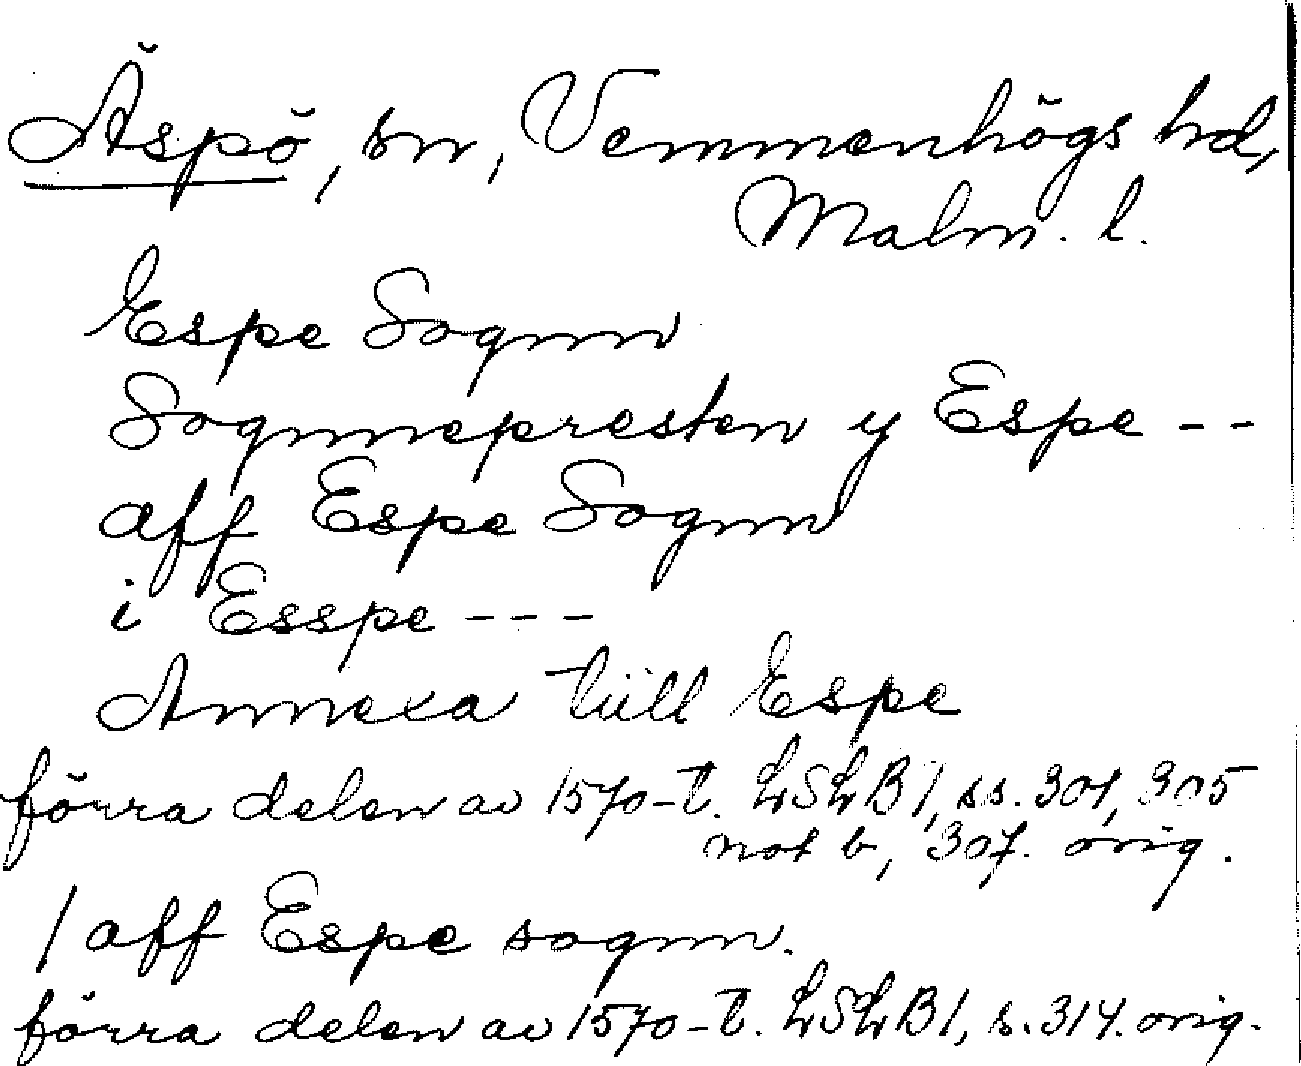 Äspö, sn, Vemmenhögs hd,
Malm. l.
Espe Sognn
Sognnepresten y Espe --
aff Espe Sognn
i Esspe ---
Annexa tiill Espe
förra delen av 1570-t. LSLB 1, ss. 301, 305
not b, 307. orig.
/ aff Espe sognn.
förra delen av 1570-t. LSLB 1, s. 314. orig.